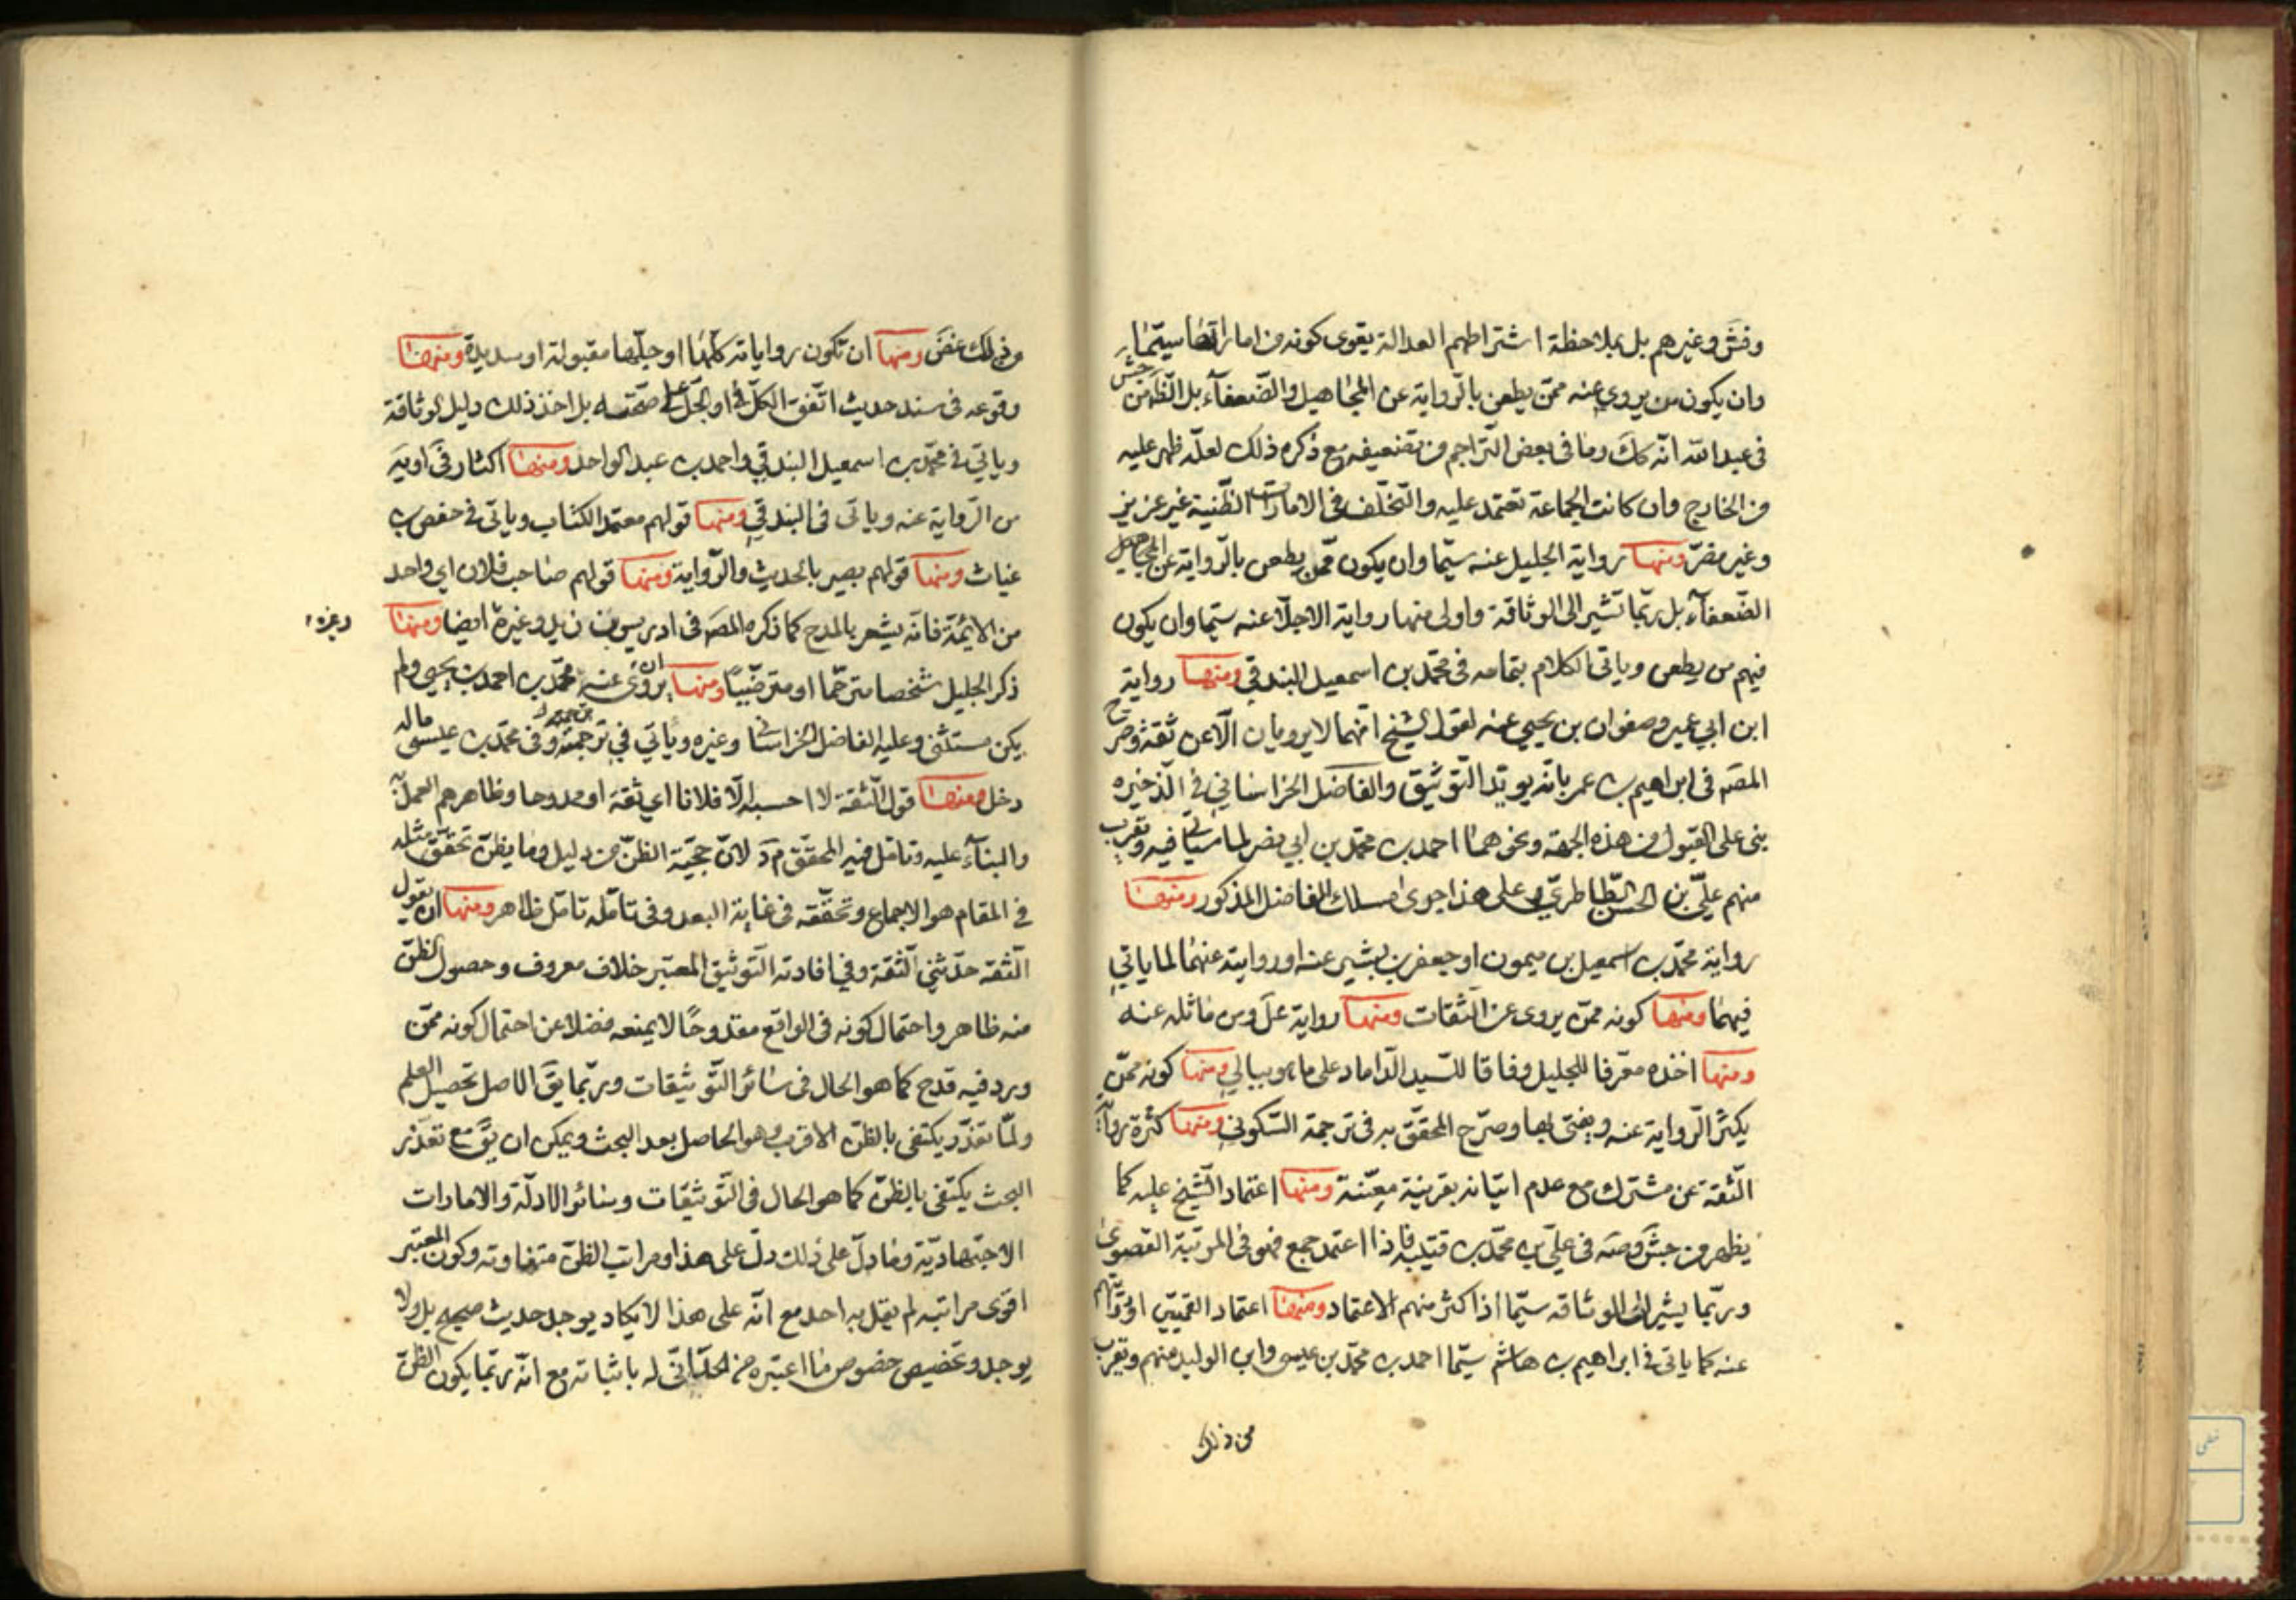 وفش وغيرهم بل بملاحظة اشتراطهم العدالة يقوى كونه من اماراتها سيّما
وان يكون من يروى عنه ممّن يطعن بالرّواية عن المجاهيل والضّعفآء بل الظّ من جش
فى عبد الله انّه كك وما فى بعض التّراجم من تضعيفه مع ذكره ذلك لعلّه ظهر عليه
من الخارج وان كانت الجماعة تعتمد عليه والتّخلّف فى الامارات الظّنية غير عزيز
وغير مضرّ ومنها رواية الجليل عنه سيّما وان يكون ممّن يطعن بالرّواية عن المجاهيل
الضّعفآء بل ربّما تشير الى الوثاقة واولى منها رواية الاجلّا عنه سيّما وان يكون
فيهم من يطعن وياتى الكلام بتمامه فى محمّد بن اسمعيل البندقي ومنها رواية
ابن ابي عمير وصفوان بن يحيي عنه لقول الشيخ انّهما لا يرويان الّا عن ثقة وصرّح
المصَ فى ابراهيم بن عمر بانّه يويّد التّوثيق والفاضل الخراساني فى الذّخيره
بنى على القبول من هذه الجهة ونحوهما احمد بن محمّد بن ابي نصر لما سيأتى فيه ويقرب
منهم علىّ بن الحسن الطّاطرىّ وعلى هذا جرى مسلك الفاضل المذكور ومنها
رواية محمّد بن اسمعيل بن ميمون او جعفر بن بشير عنه او روايته عنهما لما ياتي
فيهما ومنها كونه ممّن يروى عن الثّقات ومنها رواية عل ومن ماثله عنه
ومنها اخذه معّرفا للجليل وفاقا للسّيد الدّاماد على ما هو ببالي ومنها كونه ممّن
يكثر الرّواية عنه ويفتى بها وصرّح المحقّق به فى ترجمة السّكونى ومنها كثرة رواية
الثّقة عن مشترك مع عدم اتيانه بقرينة معيّنة ومنها اعتماد الشّيخ عليه كما
يظهر من جش وصه فى علىّ بن محمّد بن قتيبه فاذا اعتمد جمع فهو فى المرتبة القصوى
وربّما يشير الى الوثاقه سيّما اذا كثر منهم الاعتماد ومنها اعتماد القمّيّين او روايتهم
عنه كما ياتى فى ابراهيم بن هاشم سيّما احمد بن محمّد بن عيسى وابن الوليد منهم ويقرب
من ذلك
من ذلك غض ومنها ان تكون رواياته كلّها او جلّها مقبولة او سديدة ومنها
وقوعه فى سند حديث اتّفق الكلّ او الجلّ على صحّته بل اخذ ذلك دليل الوثاقة
وياتى فى محمّد بن اسمعيل البندقي واحمد بن عبد الواحد ومنها اكثار فى او يه
من الرّواية عنه وياتى فى البندقي ومنها قولهم معتمد الكتاب وياتى فى حفص بن
غياث ومنها قولهم بصير بالحديث والرّواية ومنها قولهم صاحب فلان اي واحد
من الائمّة فانّه يشعر بالمدح كما ذكره المصَ فى ادريس بن يزيد وغيره ايضا ومنها
وغيره
ذكر الجليل شخصا مترحّما او مترضّيًا ومنها ان يروى عنه محمّد بن احمد بن يحيى ولم
يكن مستثنى وعليه الفاضل الخراساني وغيره وياتي في ترجمته وفى محمّد بن عيسى ماله
دخل ومنها قول الثّقة لا احسبه الّا فلانا اي ثقة او ممدوحا وظاهرهم العمل
والبنآء عليه وتامّل فيه المحقّق م د لانّ حجّية الظنّ من دليل وما يظنّ تحقّق مثله
في المقام هو الاجماع وتحقّقه فى غاية البعد وفى تامّله تامّل ظاهر ومنها ان يقول
الثّقه حدّثني الثّقة وفي افادته التّوثيق المعتبر خلاف معروف وحصول الظنّ
منه ظاهر واحتمال كونه فى الواقع مقدوحًا لا يمنعه فضلا عن احتمال كونه ممّن
ورد فيه قدح كما هو الحال فى سائر التّوثيقات وربّما يقَ الاصل تحصيل العلم
ولمّا تعذّر يكتفى بالظنّ الاقرب وهو الحاصل بعد البحث ويمكن ان يقَ مع تعذّر
البحث يكتفى بالظنّ كما هو الحال فى التّوثيقات وسائر الادلّة والامارات
الاجتهاديّة وما دلّ على ذلك دلّ على هذا ومراتب الظنّ متفاوته وكون المعتبر
اقوى مراتبه لم يقل به احد مع انّه على هذا لا يكاد يوجد حديث صحيح بل ولا
يوجد وتخصيص خصوص ما اعتبره من الحدّ انّى له باثباته مع انّه ربّما يكون الظنّ